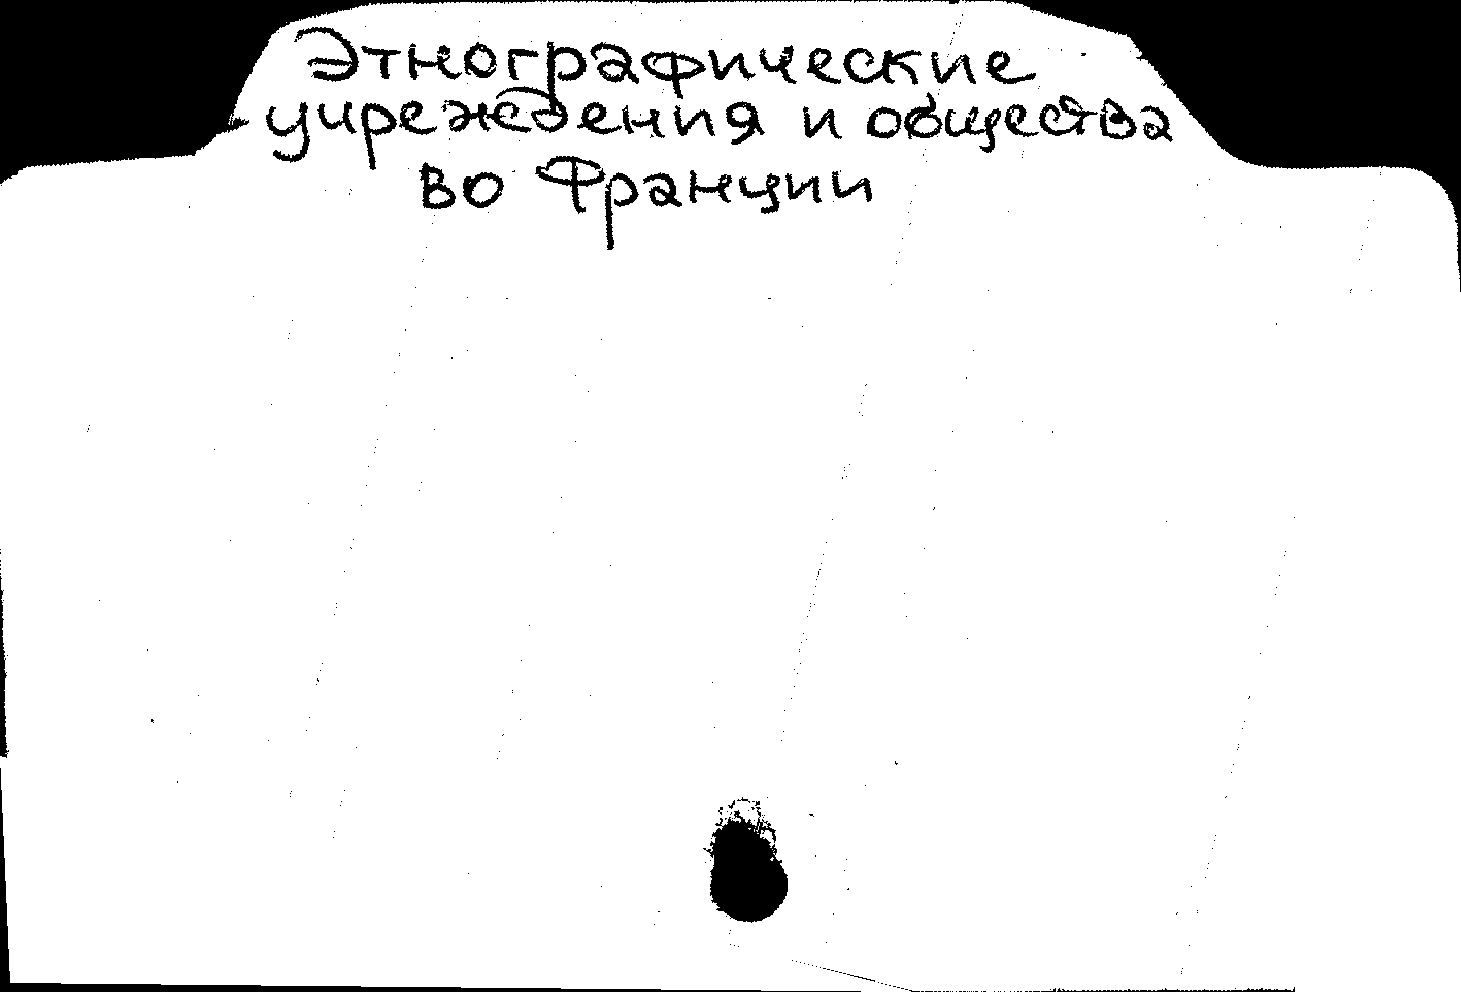 Этнографические
учреждения и общества
во Франции